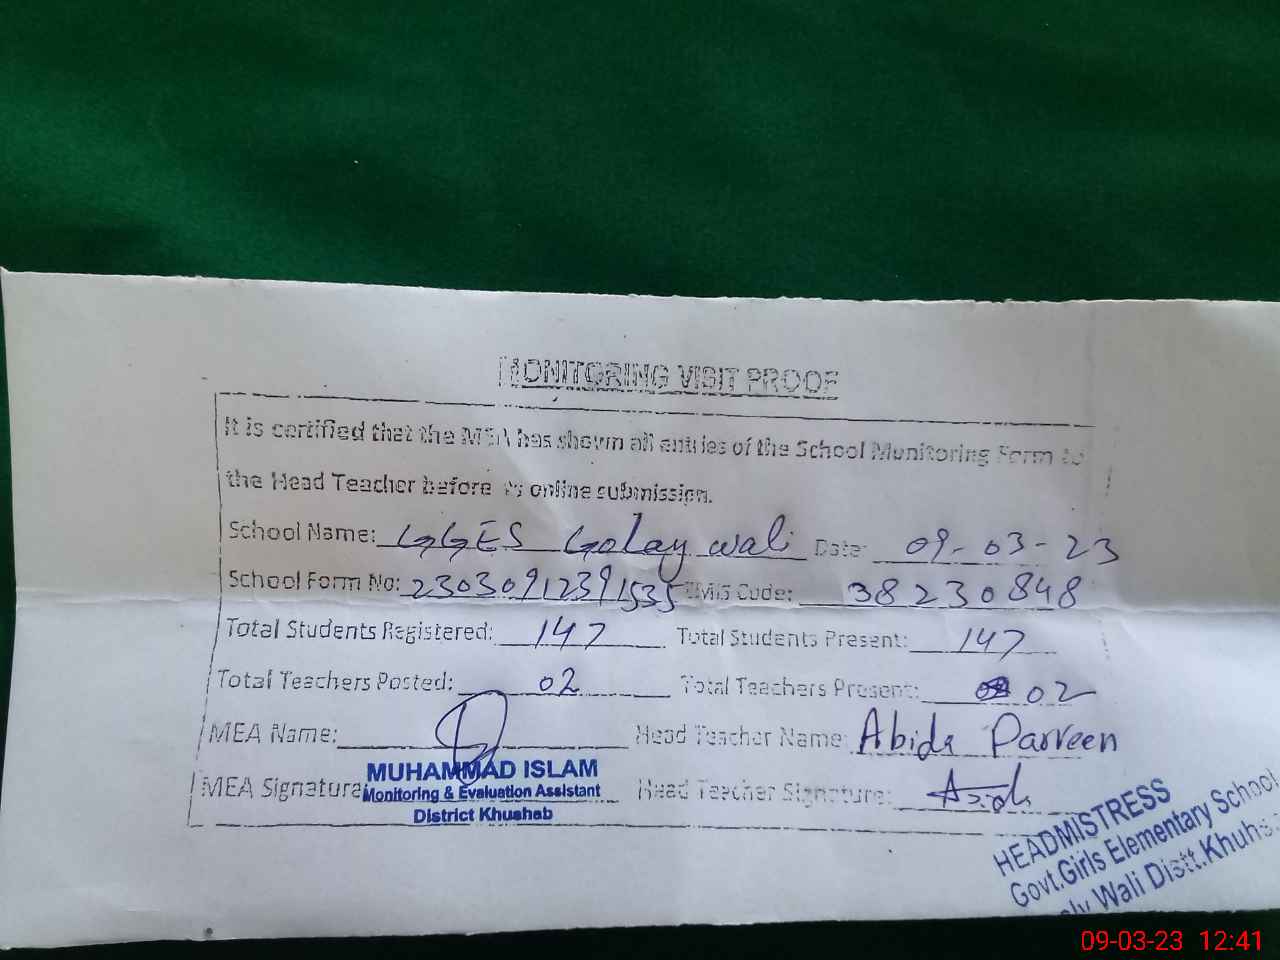 MONITORING VISIT PROOF
It is certified that the MEA has shown all entries of the School Monitoring Form to
the Head Teacher before its online submission.
School Name: GGES Golay wali Date: 09-03-23
School Form No: 23030912391535 EMIS Code: 38230848
Total Students Registered: 147 Total Students Present: 147
Total Teachers Posted: 02 Total Teachers Present: 02
MEA Name: Head Teacher Name: Abida Parveen
MUHAMMAD ISLAM
MEA Signature Head Teacher Signature: Abida
Monitoring & Evaluation Assistant
District Khushab
HEADMISTRESS
Govt.Girls Elementary School
Wali Distt.Khuhs
09-03-23 12:41